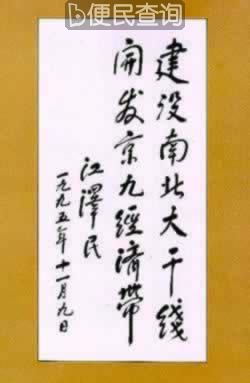 便民查询
建设南北大干线
開发京九經濟带
江澤民
一九九五年十一月九日